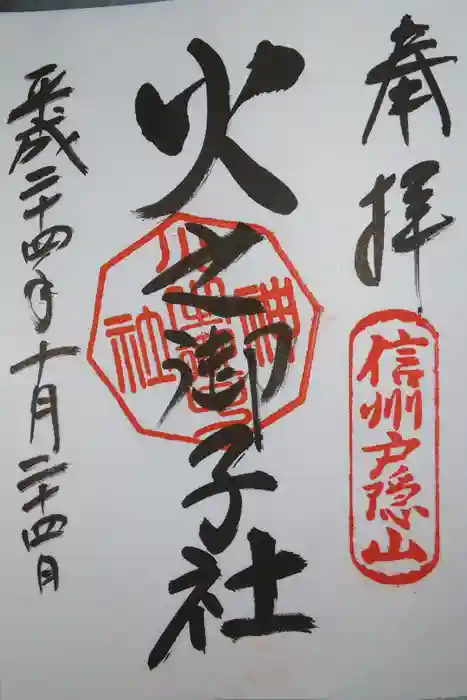 奉拝
信州戸隠山
火之御子社
平成二十四年十月二十四日